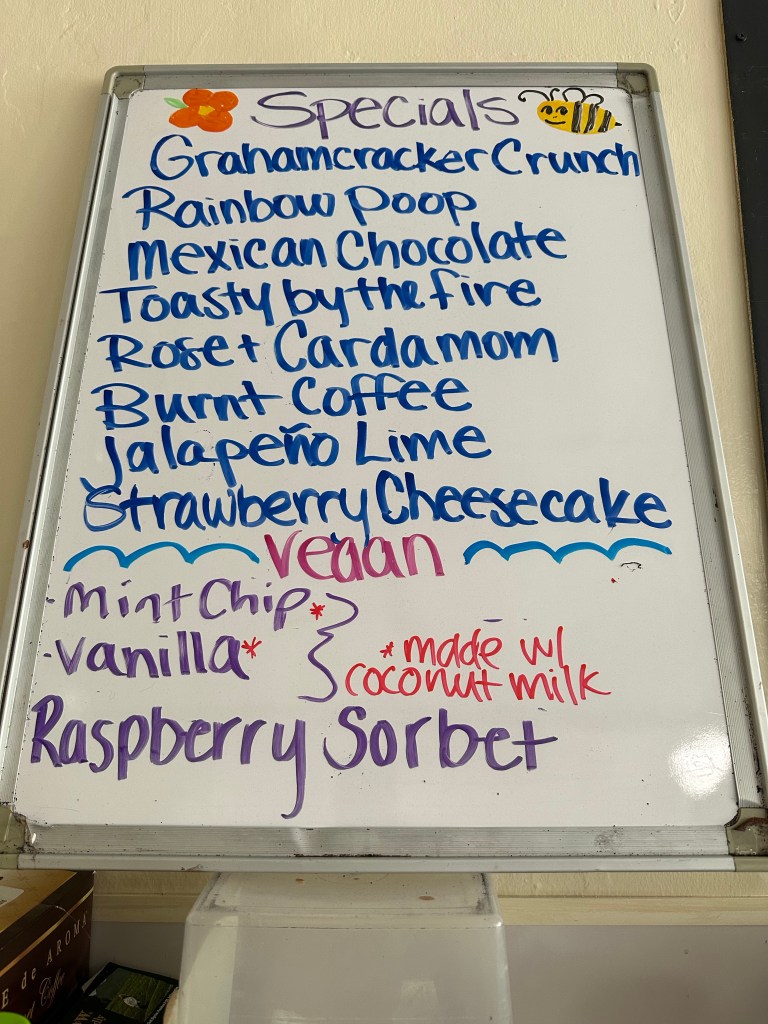 Specials
Grahamcracker Crunch
Rainbow Poop
Mexican Chocolate
Toasty by the fire
Rose + Cardamom
Burnt Coffee
Jalapeño Lime
Strawberry Cheesecake
Vegan
· Mint Chip *
· Vanilla *
* made w/
coconut milk
Raspberry Sorbet
E de AROMA
Coffee